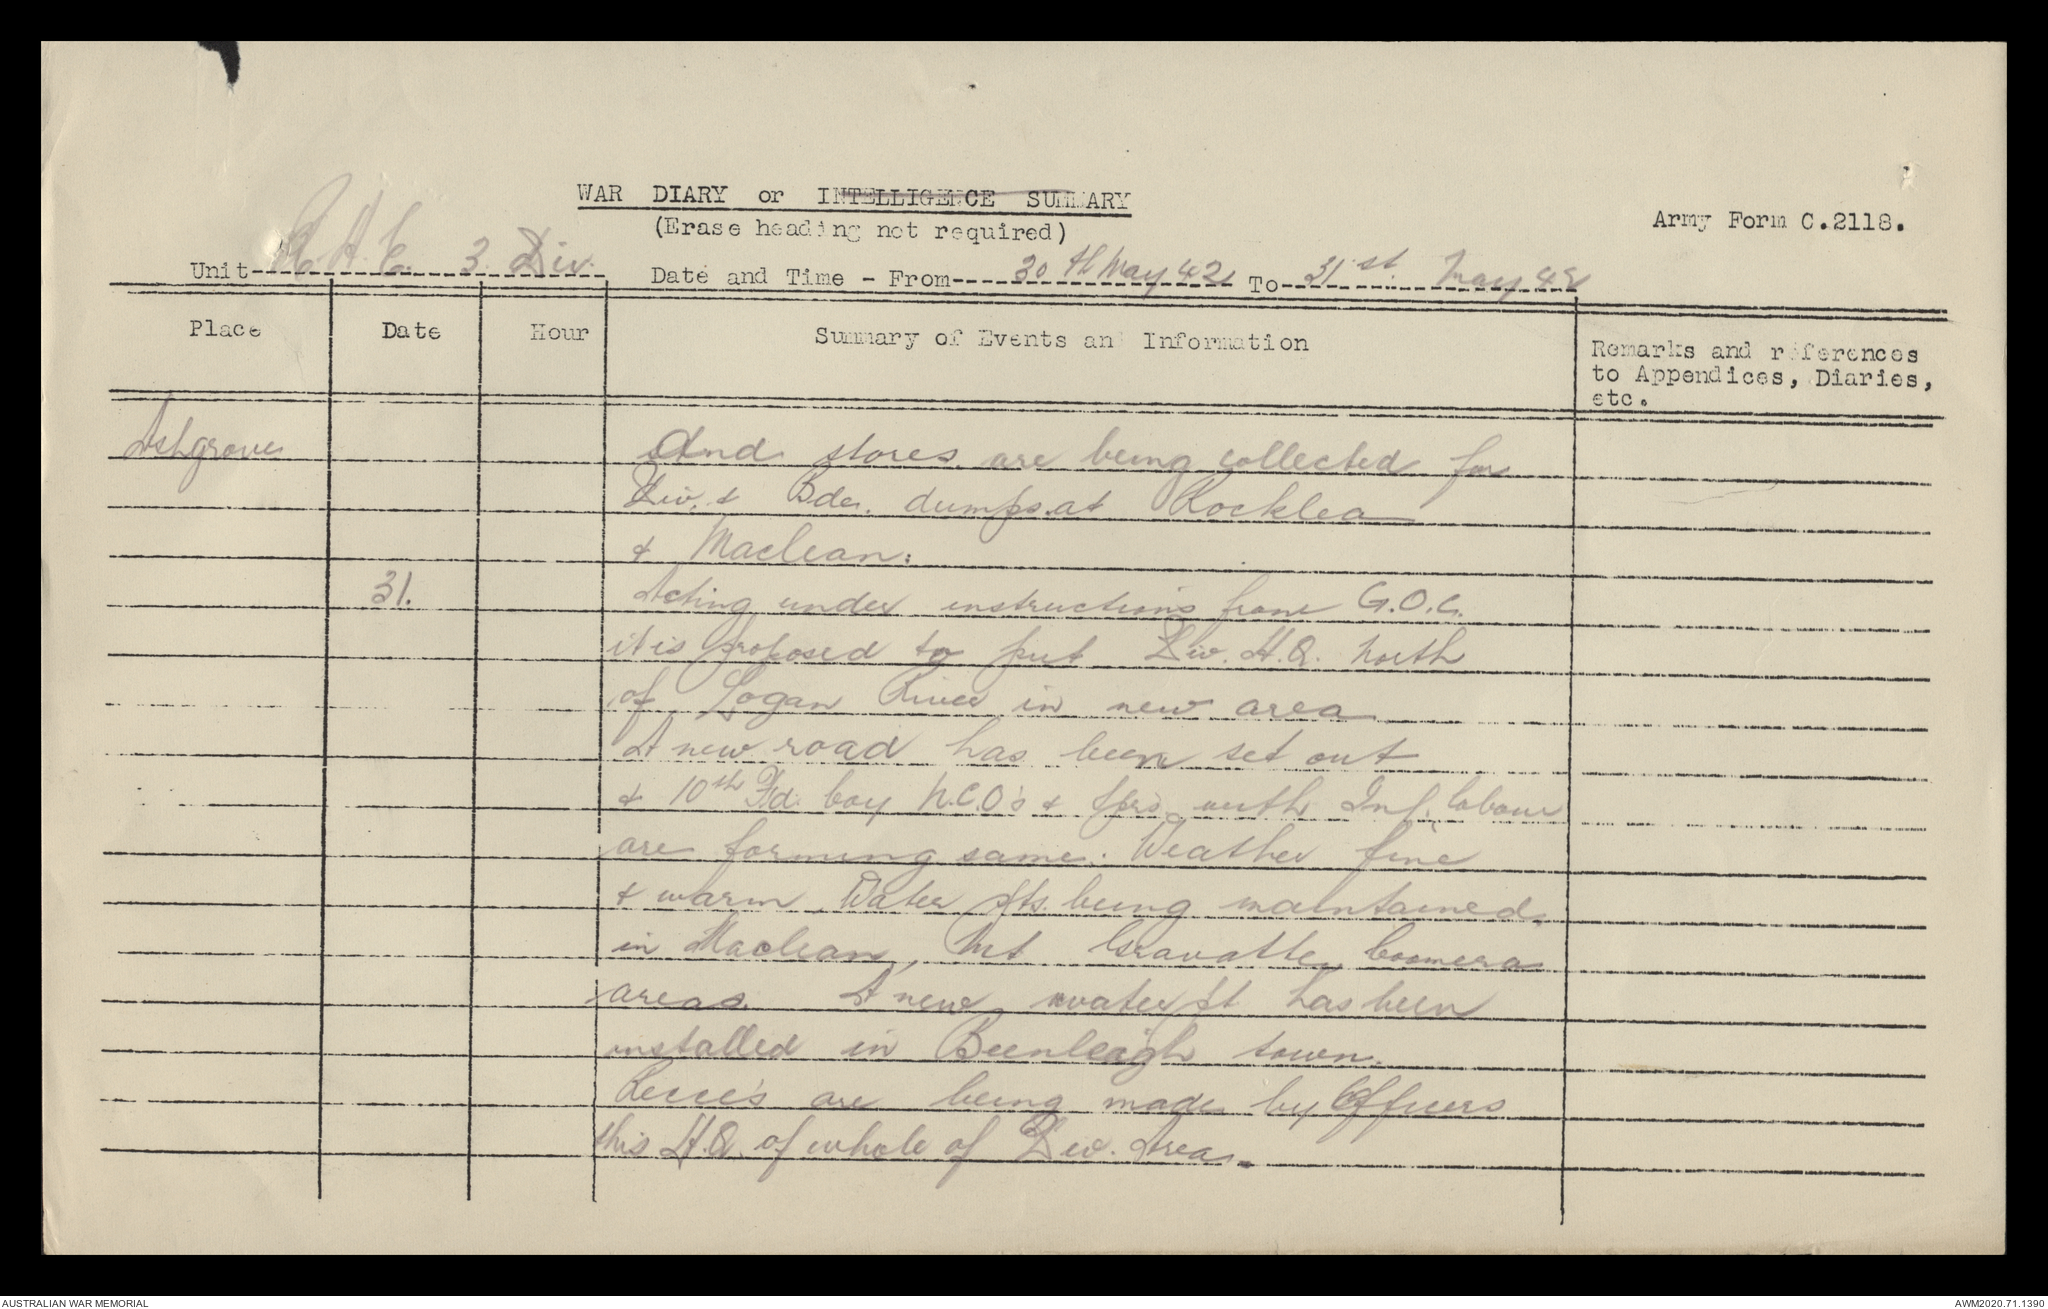 WAR DIARY or INTELLIGENCE SUMMARY
(Erase heading not required)
Army Form C.2118.
Unit R.A.E. 3. Div.
Date and Time - From 30th May 42 To 31st. May 42
Place Date Hour Summary of Events and Information Remarks and references to Appendices, Diaries, etc.
Ashgrove And stores are being collected for
Div. & Bde. dumps at Rocklea
& Maclean.
31. Acting under instructions from G.O.C.
it is proposed to put Div. H.Q. North
of Logan River in new area
A new road has been set out
& 10th Fd. Coy N.C.O's & Sprs with Inf. labour
are forming same. Weather fine
& warm. Water pts. being maintained
in Maclean, Mt Gravatt, Coomera
areas. A new water pt has been
installed in Beenleigh town.
Recce's are being made by Officers
this H.Q. of whole of Div. Area.
AUSTRALIAN WAR MEMORIAL
AWM2020.71.1390